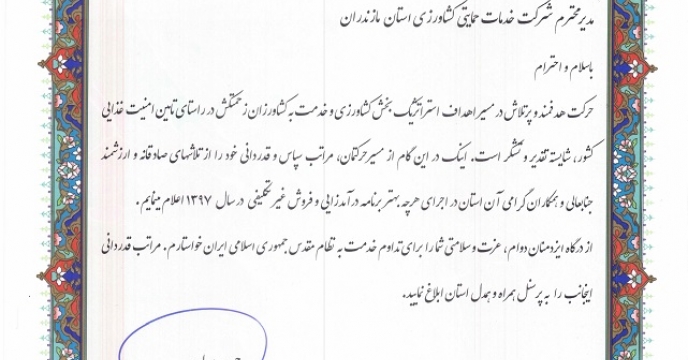 مدیر محترم شرکت خدمات حمایتی کشاورزی استان مازندران
باسلام و احترام
حرکت هدفمند و پرتلاش در مسیر اهداف استراتژیک بخش کشاورزی و خدمت به کشاورزان زحمتکش در راستای تامین امنیت غذایی
کشور، شایسته تقدیر و تشکر است. اینک در این گام از مسیر حرکتمان، مراتب سپاس و قدردانی خود را از تلاشهای صادقانه و ارزشمند
جنابعالی و همکاران گرامی آن استان در اجرای هرچه بهتر برنامه درآمدزایی و فروش غیرتکلیفی در سال ۱۳۹۷ اعلام مینمایم.
از درگاه ایزدمنان دوام، عزت و سلامتی شما را برای تداوم خدمت به نظام مقدس جمهوری اسلامی ایران خواستارم. مراتب قدردانی
اینجانب را به پرسنل همراه و همدل استان ابلاغ نمایید.